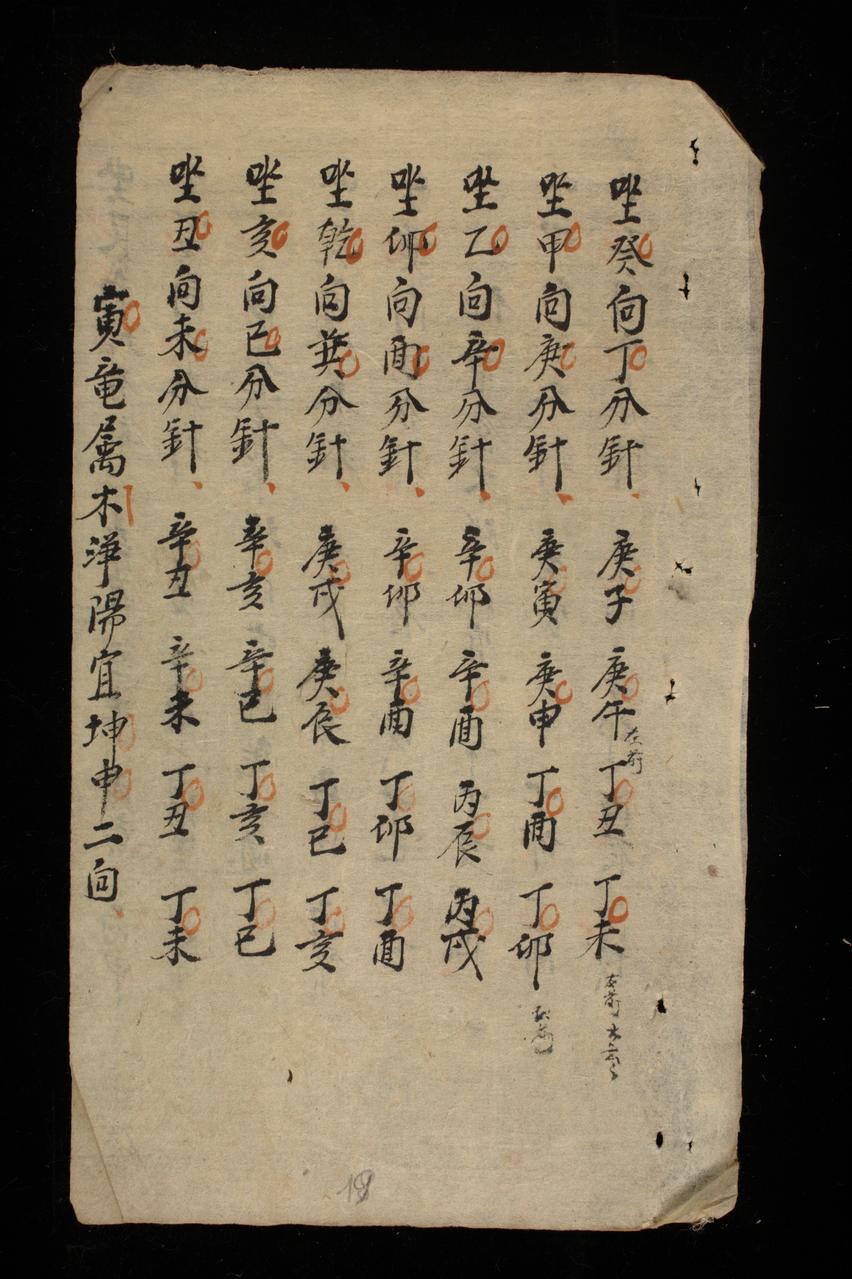 坐癸向丁分針 庚子 庚午 丁丑 丁未
坐甲向庚分針 庚寅 庚申 丁酉 丁卯
坐乙向辛分針 辛卯 辛酉 丙辰 丙戌
坐卯向酉分針 辛卯 辛酉 丁卯 丁酉
坐乾向巽分針 庚戌 庚辰 丁巳 丁亥
坐亥向巳分針 辛亥 辛巳 丁亥 丁巳
坐丑向未分針 辛丑 辛未 丁丑 丁未
寅竜属木淨陽宜坤申二向
18